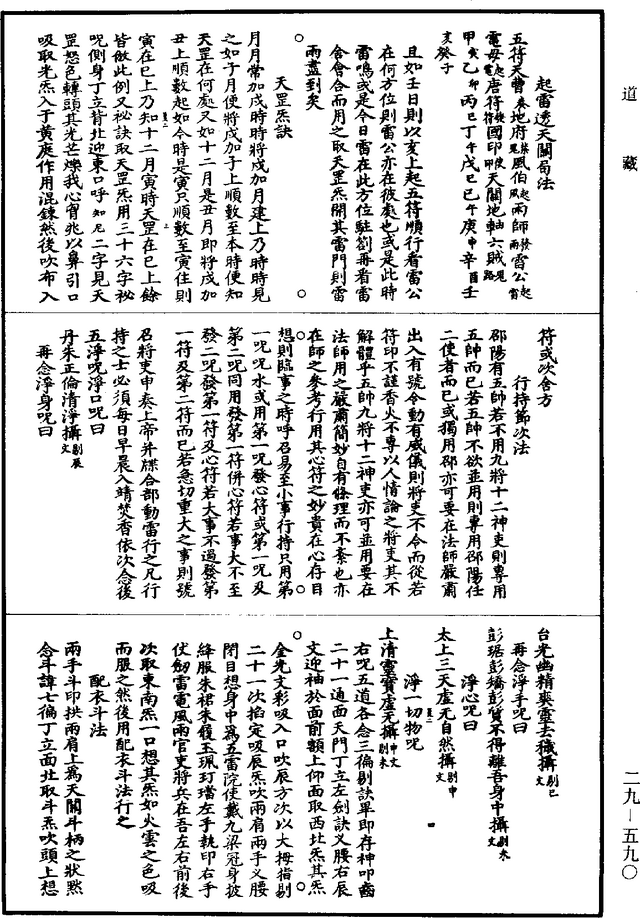 道藏
起雷透天關訣法
五符天曹地府風伯雨師雷公
電母唐符國印天關地軸六賊
甲乙丙丁戊己庚辛壬
癸
且如壬日則以亥上起五符順行看雷公
在何方位則雷公亦在彼處也或是此時
雷鳴或是今日雷在此方位駐劄再看雷
舍會合而用之取天罡炁開其雷門則雷
雨盡到矣
天罡炁訣
月月常加戌時時將戌加月建上乃時時見
之如子月便將戌加子上順數至本時便知
天罡在何處又如十二月是丑月即將戌加
丑上順數起如今時是寅只順數至寅住則
寅在巳上乃知十二月寅時天罡在巳上餘
皆倣此例又祕訣取天罡炁用三十六字祕
呪側身丁立背北迎東口呼二字見天
罡怒色轉頭其光芒爍我心胷兆以鼻引口
吸取光炁入于黃庭作用混鍊然後吹布入
符或次舍方
行持節次法
邵陽有五帥若不用九將十二神吏則專用
五帥而已若五帥不欲並用則專用邵陽任
二使者而已或獨用邵亦可要在法師嚴肅
出入有號令動有威儀則將吏不令而從若
符印不謹香火不專以人情論之將吏其不
解體乎五帥九將十二神吏亦可並用要在
法師用之嚴肅簡妙自有條理而不紊也亦
在師之參考行用其心符之妙貴在心存目
想則臨事之時呼召易至小事行持只用第
一呪呪水或用第一呪發心符或第一呪及
第二呪同用發第一符併心符若事大不至
發二呪發第一符及心符若大事不過發第
一符及第二符而已若急切重大之事則號
召將吏申奏上帝并牒合部動雷行之凡行
持之士必須每日早晨入靖焚香依次念後
五淨呪淨口呪曰
丹朱正倫清淨攝剔辰文
再念淨身呪曰
台光幽精爽靈去穢攝剔巳文
再念淨手呪曰
彭琚彭矯彭質不得離吾身中攝剔未文
淨心呪曰
太上三天虛无自然攝剔申文
淨一切物呪
上清靈寶虛无攝
右呪五道各念三徧剔訣畢即存神叩齒
二十一通面天門丁立左劍訣义腰右辰
文迎袖於面前額上仰面取西北炁其炁
金光文彩吸入口吹辰方次以大拇指剔
二十一次掐定吸辰炁吹兩肩兩手义腰
閉目想身中爲五雷院使戴九梁冠身披
絳服朱裙朱履玉珮玎璫左手執印右手
仗劒雷電風雨官吏將兵在吾左右前後
次取東南炁一口想其炁如火雲之色吸
而服之然後用配衣斗法行之
配衣斗法
兩手斗印拱兩肩上爲天關斗柄之狀黙
念斗諱七徧丁立面北取斗炁吹頭上想
二九—五九〇